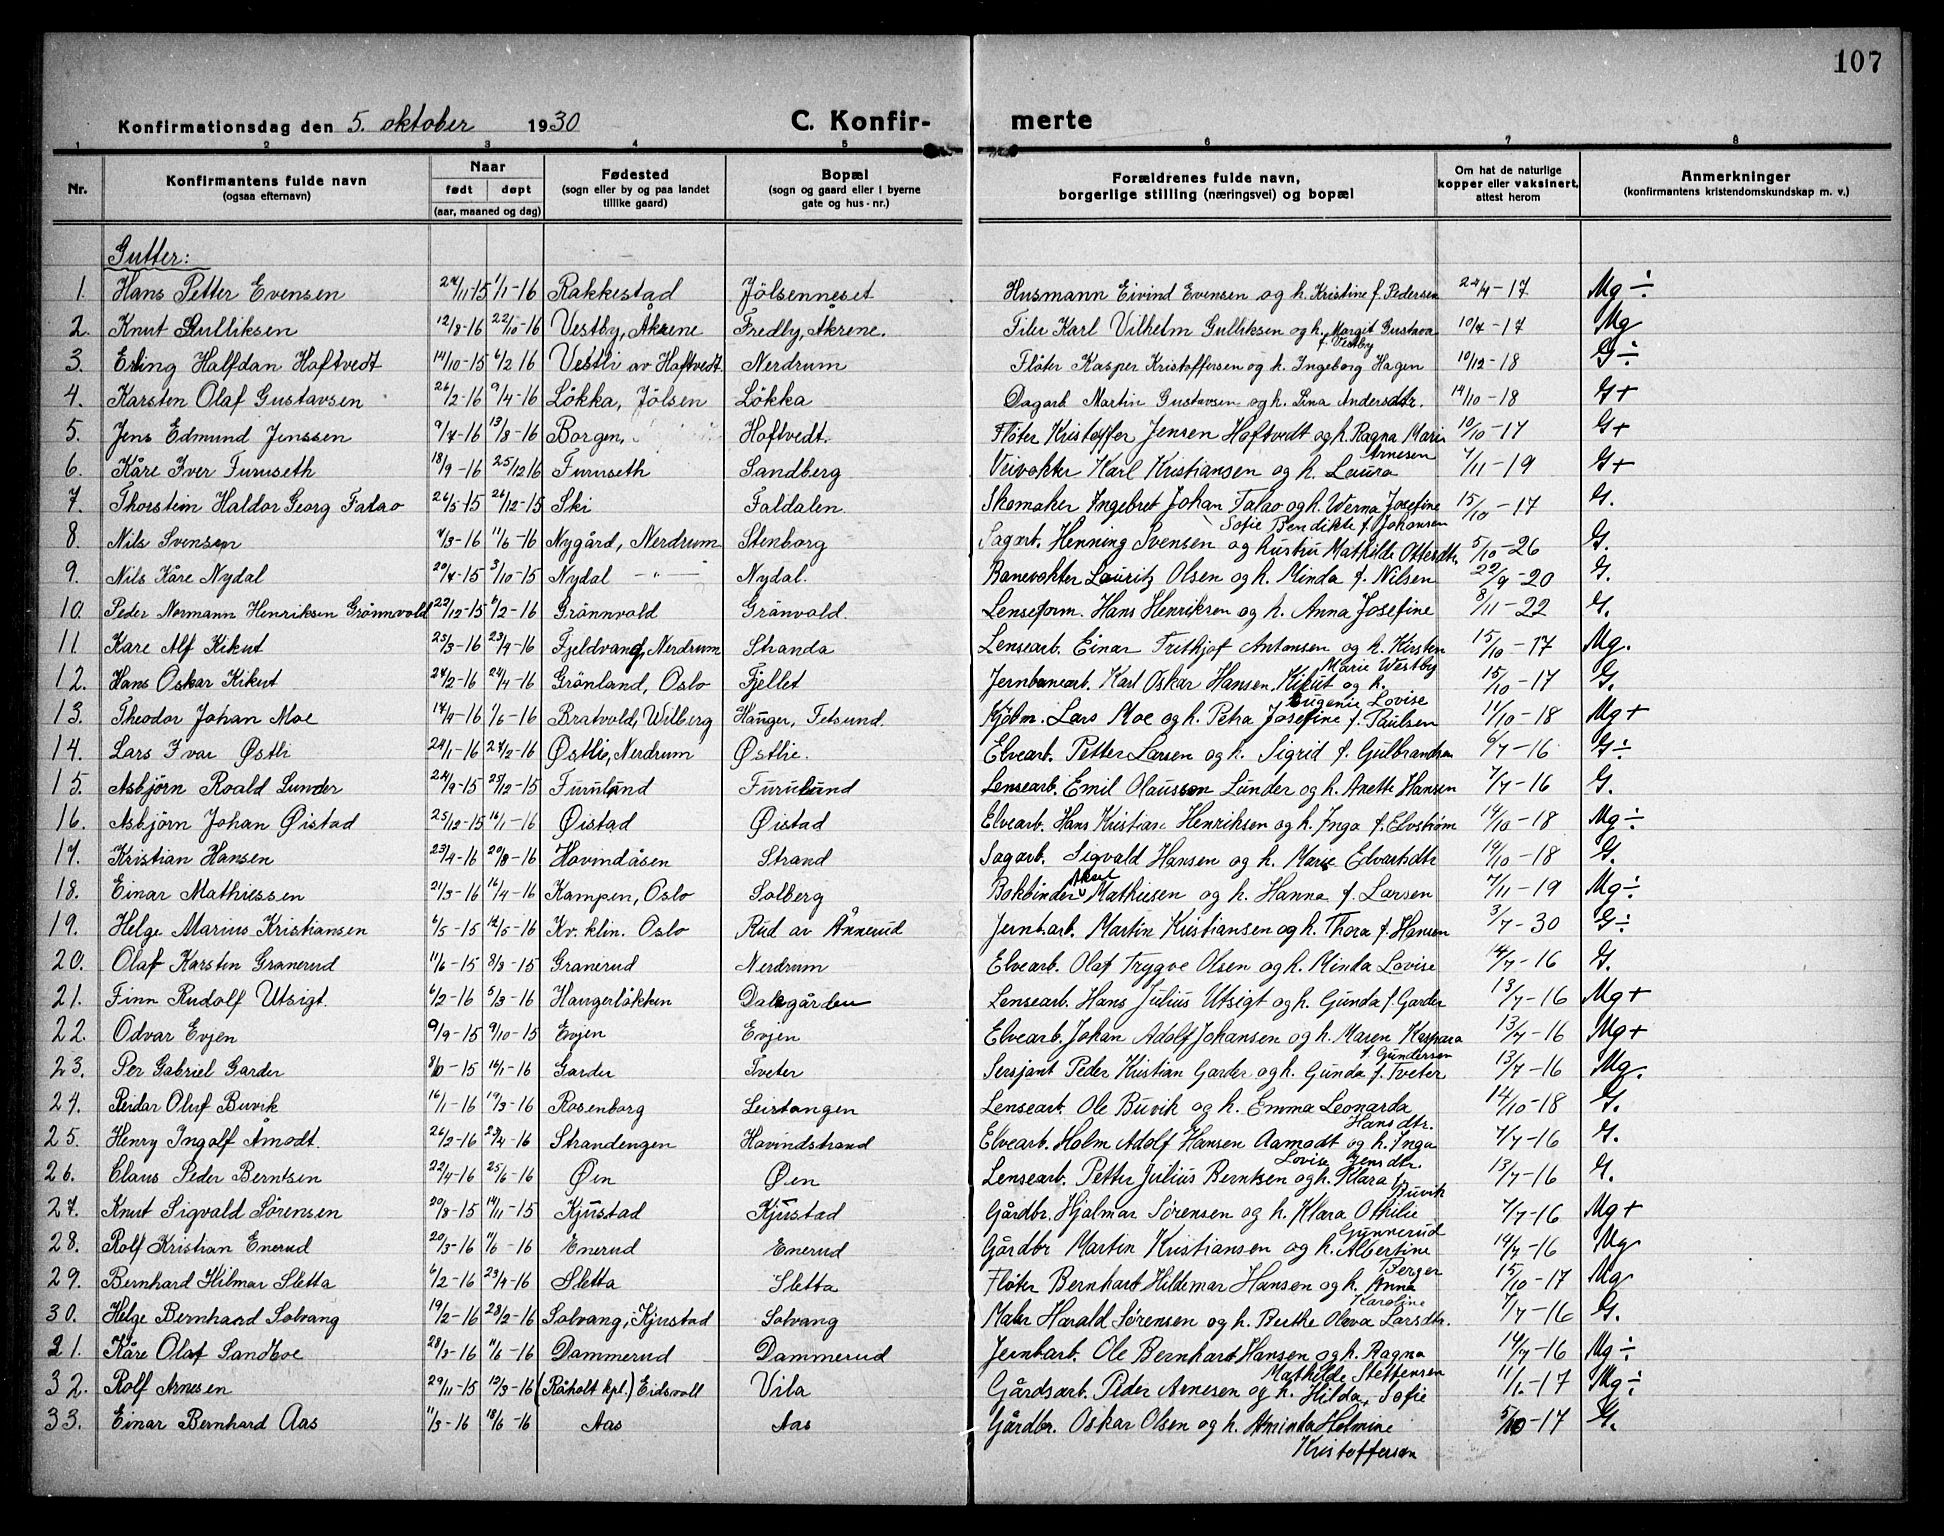 107
Konfirmationsdag den 5. oktober 1930 C. Konfir- merte
1 2 3 4 5 6 7 8
Nr. Konfirmantens fulde navn (ogsaa efternavn) Naar født døpt (aar, maaned og dag) Fødested (sogn eller by og paa landet tillike gaard) Bopæl (sogn og gaard eller i byerne gate og hus-nr.) Forældrenes fulde navn, borgerlige stilling (næringsvei) og bopæl Om hat de naturlige kopper eller vaksinert, attest herom Anmerkninger (konfirmantens kristendomskundskap m. v.)
Gutter:
1. Hans Petter Evensen 24/11-15 1/1-16 Rakkestad Jölsenneset Husmann Eivind Evensen og h. Kristine f. Pedersen 24/4-17 Mg ÷
2. Knut Gulliksen 12/8-16 22/10-16 Vestby, Åkrene Fredby, Åkrene. Filer Karl Vilhelm Gulliksen og h. Margit Gustava f. Vestby 10/7-17 Mg
3. Erling Halfdan Haftvedt 14/10-15 6/2 16 Vestli av Haftvedt Nerdrum Flöter Kasper Kristoffersen og h. Ingeborg Hagen 10/12-18 G ÷
4. Karsten Olaf Gustavsen 26/2-16 9/4-16 Lökka, Jölsen Lökka Dagarb. Martin Gustavsen og h. Lina Andersdtr. 14/10-18 G +
5. Jens Edmund Jenssen 9/4-16 13/8-16 Borgen, Haftvedt. Flöter Kristoffer Jensen Haftvedt og h. Ragna Marie Arnesen 10/10-17 G +
6. Kåre Iver Furuseth 18/9-16 25/12 16 Furuseth Sandberg Veivokter Karl Kristiansen og h. Laura 7/11-19 G +
7. Thorstein Haldor Georg Falao 26/5-15 26/12-15 Ski Faldalen. Skomaker Ingebret Johan Falao og h. Werna Josefine Sofie Bendikte f. Johansen 15/10-17 G.
8. Nils Svensen 4/3-16 11/6-16 Nygård, Nerdrum Stenborg Sagarb. Henning Svensen og hustru Mathilde Ottersdtr. 5/10-26 G.
9. Nils Kåre Nydal 20/4-15 3/10-15 Nydal -"- Nydal. Banevokter Lauritz Olsen og h. Minda f. Nilsen 22/9-20 G.
10. Peder Normann Henriksen Grönnvold 22/12-15 6/2-16 Grönnvold Grönvold. Lenseform. Hans Henriksen og h. Anna Josefine 8/11-22 G.
11. Kåre Alf Kikut 25/3-16 23/4-16 Fjeldvang, Nerdrum Stranda Lensearb. Einar Fritkjof Antonsen og h. Kirsten Marie Westby 15/10-17 Mg.
12. Hans Oskar Kikut 24/2-16 24/4-16 Grönland, Oslo Fjellet Jernbanearb. Karl Oskar Hansen Kikut og h. Eugenie Lovise 15/10-17 G.
13. Theodor Johan Moe 14/4-16 /6-16 Bratvold, Wilberg Hauger, Fetsund. Kjölm. Lars Moe og h. Petra Josefine f. Paulsen 11/10-18 Mg +
14. Lars Ivar Østli 24/1-16 27/2-16 Østlie, Nerdrum Østlie. Elvearb. Petter Larsen og h. Sigrid f. Gulbrandsen 6/7-16 G ÷
15. Asbjörn Roald Lunder 24/9-15 25/12-15 Furulund Furulund Lensearb. Emil Olausson Lunder og h. Anette Hansen 7/7-16 G.
16. Asbjörn Johan Øistad 25/12-15 16/1-16 Øistad Øistad Elvearb. Hans Kristian Henriksen og h. Inga f. Elvström 14/10-18 Mg ÷
17. Kristian Hansen 23/4-16 20/8-16 Hovindåsen Strand Sagarb. Sigvald Hansen og h. Marie Elvartsdtr 19/10-18 G.
18. Einar Mathiessen 21/3-16 16/4-16 Kampen, Oslo Solberg Bokbinder Aksel Mathiesen og h. Hanna f. Larsen 7/11-19 Mg ÷
19. Helge Marius Kristiansen 6/5-15 12/5-16 Kv. klin. Oslo Rud av Ånnerud Jernbarb. Martin Kristiansen og h. Thora f. Hansen 3/7-30 G ÷
20. Olaf Karsten Granerud 11/6-15 8/8-15 Granerud Nerdrum Elvearb. Olaf Trygve Olsen og h. Minda Lovise 14/7-16 G.
21. Finn Rudolf Utsigt. 6/2-16 5/3-16 Haugerlökken Dalsgården Lensearb. Hans Julius Utsigt og h. Gunda f. Garder 13/7-16 Mg +
22. Odvar Evjen 9/9-15 9/10-15 Evjen Evjen Elvearb. Johan Adolf Johansen og h. Maren Kaspara f. Gundersen 13/7-16 Mg +
23. Per Gabriel Garder 8/10-15 14/1-16 Garder Tveter Sersjant Peder Kristian Garder og h. Gunda f. Tveter 13/7-16 Mg.
24. Reidar Oluf Buvik 16/1-16 19/3-16 Rosenborg Leirtangen Lensearb. Ole Buvik og h. Emma Leonarda Hansdtr. 14/10-18 G.
25. Henry Ingolf Åmodt. 26/2-16 23/4-16 Strandengen Hovindstrand Elvearb. Holm Adolf Hansen Aamodt og h. Inga Lovise Jensdtr. 7/7-16 G.
26. Claus Peder Berntsen 22/4-16 25/6-16 Øen Øen Lensearb. Petter Julius Berntsen og h. Klara f. Buvik 13/7-16 G.
27. Knut Sigvald Sörensen 20/8-15 14/11-15 Kjustad Kjustad Gårdbr. Hjalmar Sörensen og h. Klara Othilie Gunnerud 7/7-16 Mg +
28. Rolf Kristian Enerud 20/3-16 11/6-16 Enerud Enerud Gårdbr Martin Kristiansen og h. Albertine Berger 14/7-16 Mg
29. Bernhard Hilmar Sletta 6/2-16 23/4-16 Sletta Sletta Flöter Bernhart Hildemar Hansen og h. Anna Karoline 15/10-17 Mg
30. Helge Bernhard Solvang 19/2-16 28/2-16 Solvang, Kjustad Solvang Maler Harald Sörensen og h. Berthe Oleva Larsdtr. 7/7-16 G.
31. Kåre Olaf Sandhve 28/3-16 11/6-16 Dammerud Dammerud Jernbarb. Ole Bernhart Hansen og h. Ragna Mathilde Steffensen 14/7-16 Mg ÷
32. Rolf Arnesen 29/11-15 12/3-16 (Råholt kpl.) Eidsvoll Vila Gårdsarb. Peder Arnesen og h. Hilda Sofie 11/12-17 Mg ÷
33. Einar Bernhard Aas 11/3-16 18/6-16 Aas Aas Gårdbr. Oskar Olsen og h. Aminda Helmine Kristoffersen 5/10-17 G.